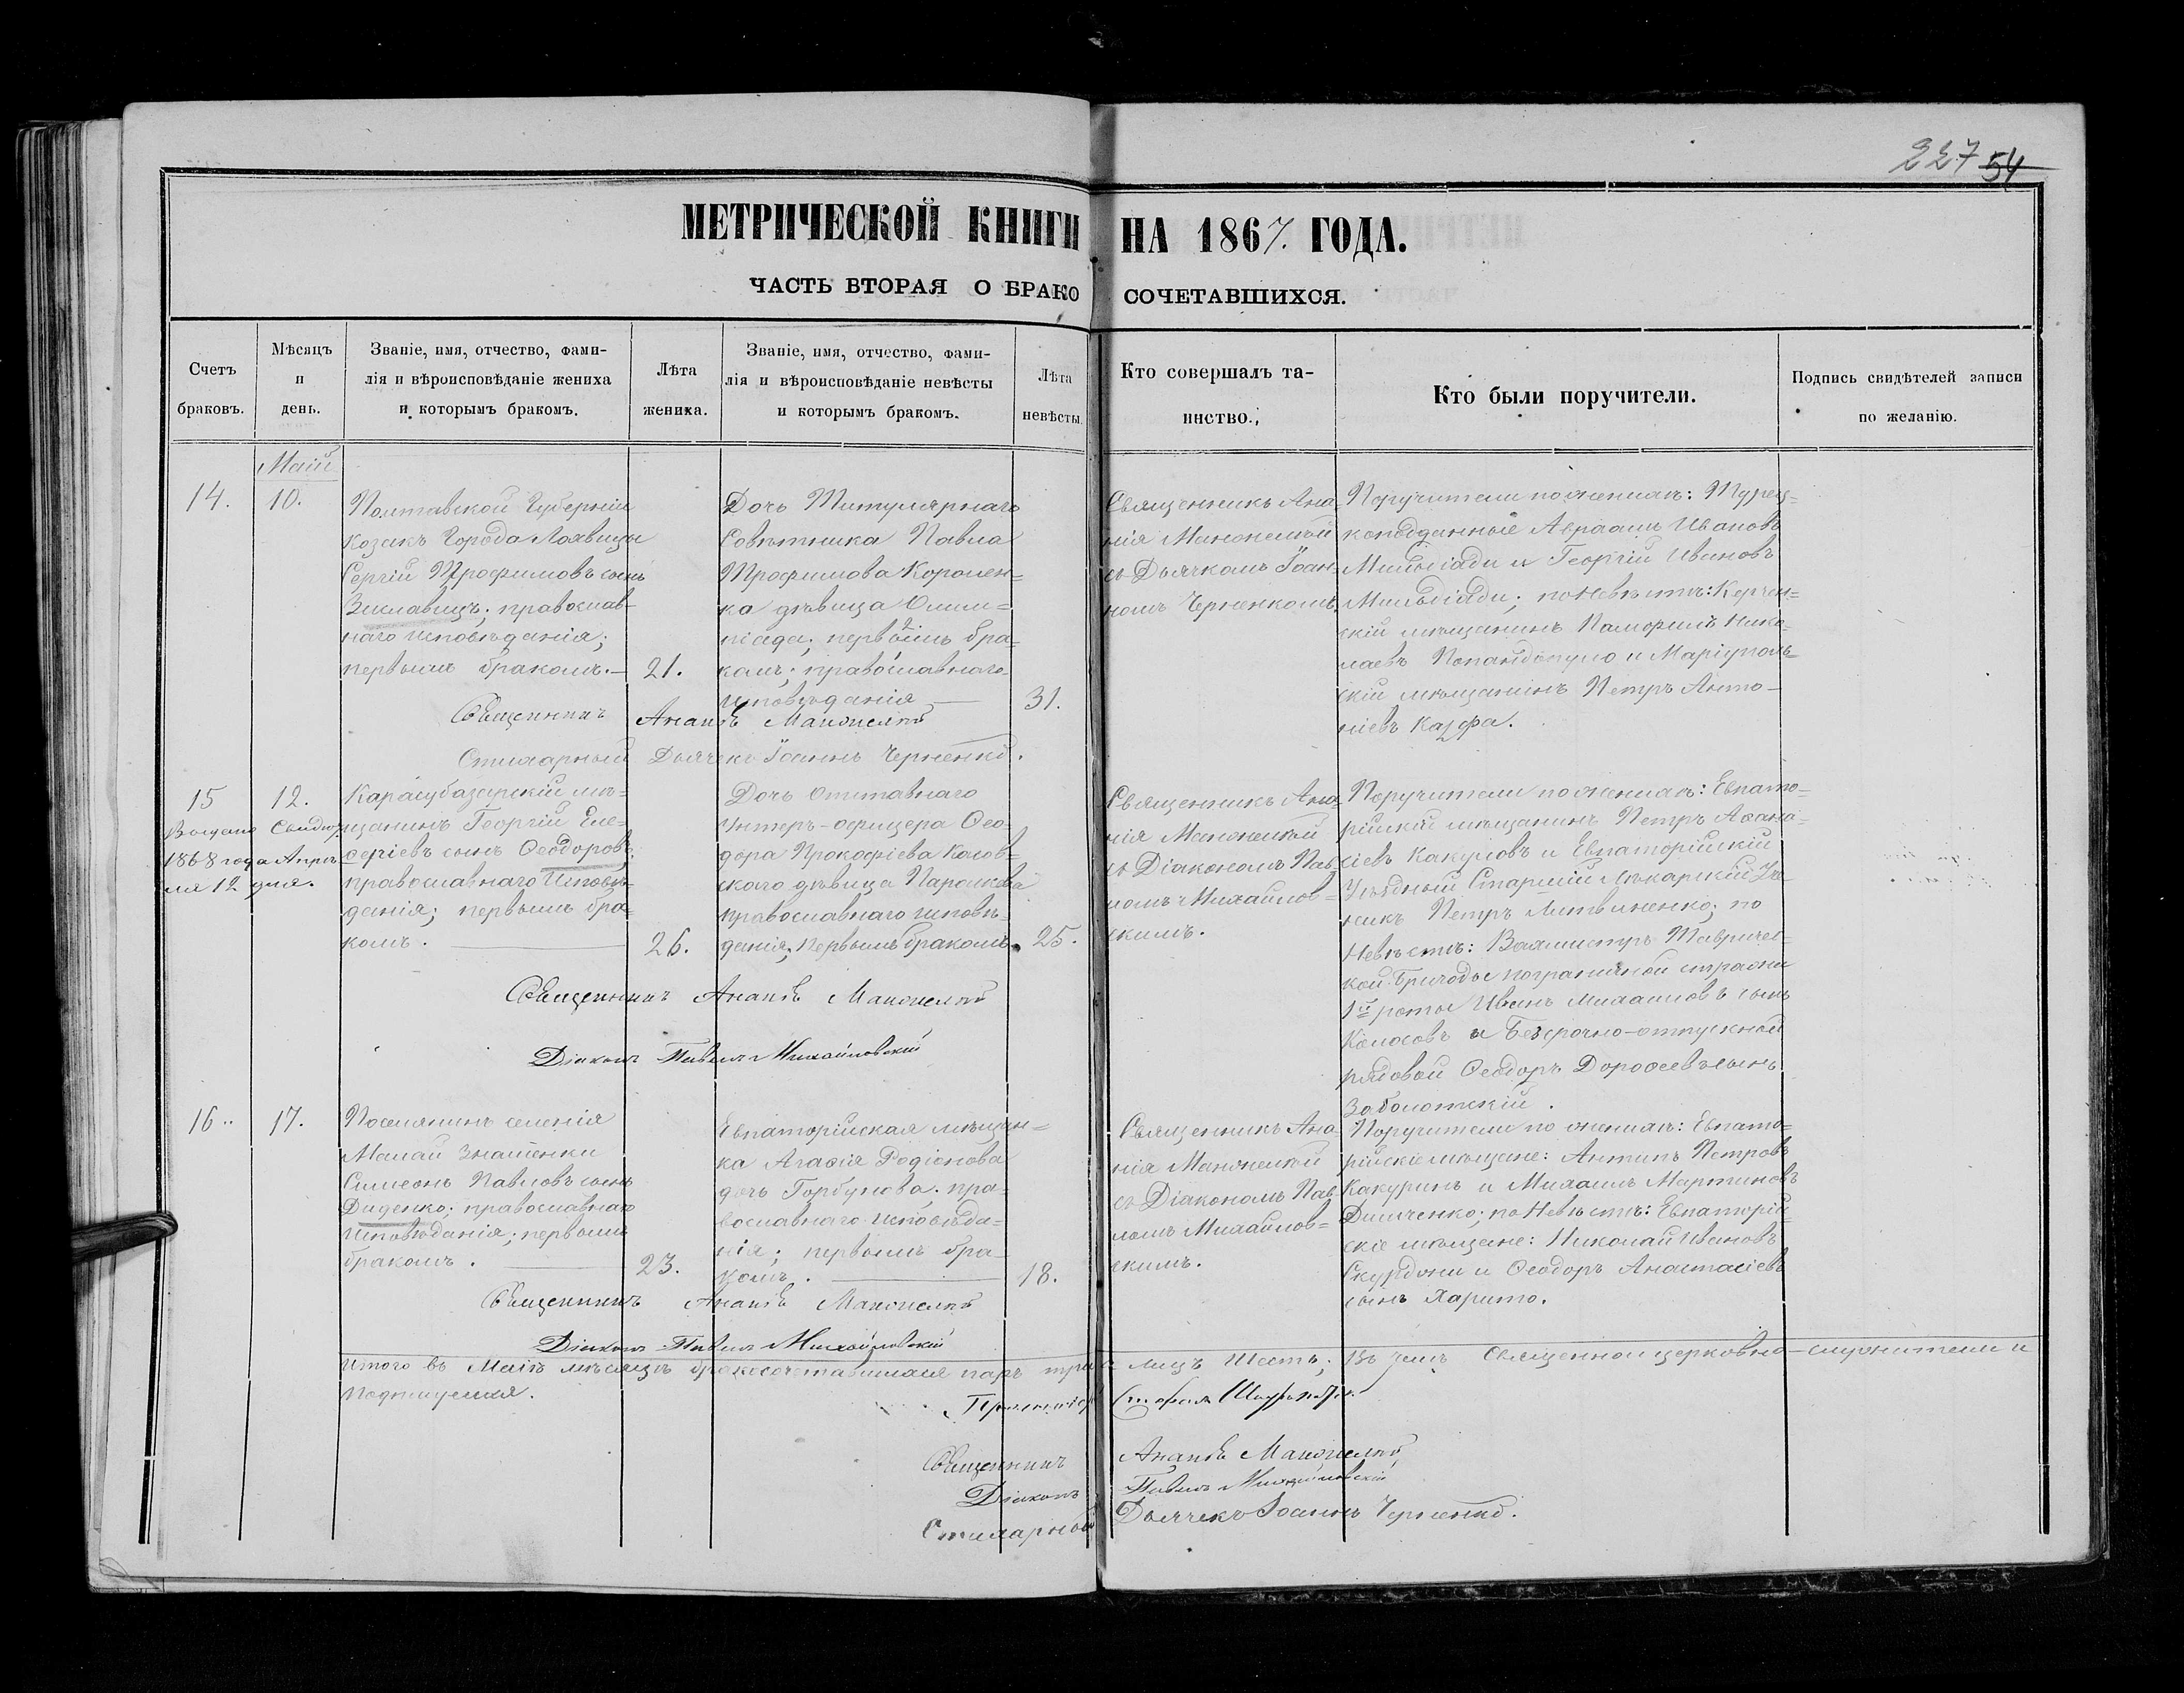 227 54
МЕТРИЧЕСКОЙ КНИГИ НА 1867. ГОДА.
ЧАСТЬ ВТОРАЯ О БРАКОСОЧЕТАВШИХСЯ.
Счетъ
браковъ.
Мѣсяцъ
и
день.
Званіе, имя, отчество, фами-
лія и вѣроисповѣданіе жениха
и которымъ бракомъ.
Лѣта
жениха.
Званіе, имя, отчество, фами-
лія и вѣроисповѣданіе невѣсты
и которымъ бракомъ.
Лѣта
невѣсты.
Кто совершалъ та-
инство.
Кто были поручители.
Подпись свидѣтелей записи
по желанію.
Маій
14.
10.
Полтавской Губерніи
козакъ Города Лохвицы
Сергій Трофимовъ сынъ
православ-
наго исповѣданія;
первымъ бракомъ.—
21.
Дочь Титулярнаго
Совѣтника Павла
Трофимова Королен-
ка дѣвица Олим-
піада; первымъ бра-
комъ; православнаго
исповѣданія —
31.
Священникъ Ана-
нія
съ Дьячкомъ Іоан-
номъ Черненкомъ
Поручители по женихѣ: Турец-
коподданные Авраамъ Ивановъ
Мильтіади и Георгій Ивановъ
Мильтіади; по Невѣстѣ: Керчен-
скій мѣщанинъ Памфилъ Нико-
лаевъ Попандопуло и Маріуполь-
скій мѣщанинъ Петръ Анто-
ніевъ
Священникъ Ананія
Стихарный Дьячекъ Іоаннъ Черненко.
15
12.
Выдано Свидѣт.
1868 года Апрѣ-
ля 12 дня.
Карасубазарскій мѣ-
щанинъ Георгій Еле-
ѳеріевъ сынъ Ѳеодоровъ;
православнаго Исповѣ-
данія; первымъ бра-
комъ.
26.
Дочь отставнаго
Унтеръ-офицера Ѳео-
дора Прокофіева Колов-
скаго дѣвица Параскева
православнаго исповѣ-
данія; первымъ бракомъ.
25.
Священникъ Ана-
нія
съ Діакономъ Пав-
ломъ Михайлов-
скимъ.
Поручители по женихѣ: Евпато-
рійскій мѣщанинъ Петръ Аѳана-
сіевъ Какуловъ и Евпаторійскій
Уѣздный Старшій Лѣкарскій Уче-
никъ Петръ Литвиненко; по
Невѣстѣ: Вахмистръ Тавричес-
кой Бригады пограничной стражи
1й роты Иванъ Михаиловъ сынъ
Колосовъ и Безсрочно-отпускной
рядовой Ѳеодоръ Дороѳеевъ сынъ
Заболотскій.
Священникъ Ананія
Діаконъ Павелъ Михайловскій
16.
17.
Поселянинъ селенія
Малай Знаменки
Симеонъ Павловъ сынъ
Диденко; православнаго
исповѣданія; первымъ
бракомъ.
23.
Евпаторійская мѣщан-
ка Агаѳія Родіонова
дочь Горбунова. пра-
вославнаго исповѣда-
нія; первымъ бра-
комъ.
18.
Священникъ Ана-
нія
съ Діакономъ Пав-
ломъ Михайлов-
скимъ.
Поручители по женихѣ: Евпато-
рійскіе мѣщане: Антипъ Петровъ
Какуринъ и Михаилъ Мартиновъ
Димченко; по Невѣстѣ: Евпаторій-
скіе мѣщане: Николай Ивановъ
Скурдони и Ѳеодоръ Анастасіевъ
сынъ Харито.
Священникъ Ананія
Діаконъ Павелъ Михайловскій
Итого въ Маіѣ мѣсяцѣ бракосочетавшихся паръ три лицъ Шесть; Въ чемъ Священно и церковно-служители и
подписуемся.
Протоіерей
Священникъ Ананія
Діаконъ Павелъ Михайловскій
Стихарный Дьячекъ Іоаннъ Черненко.